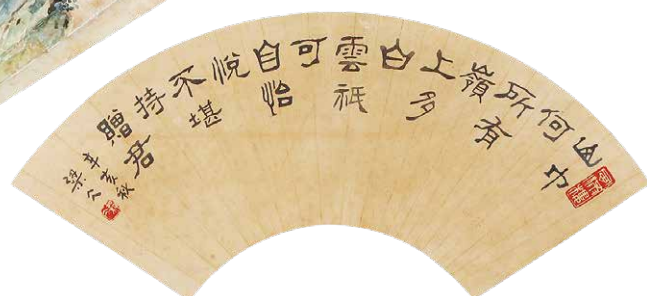 山中
何
所有
嶺
上多
白
雲祇
可
自怡
悅
不堪
持
贈君
辛亥秋